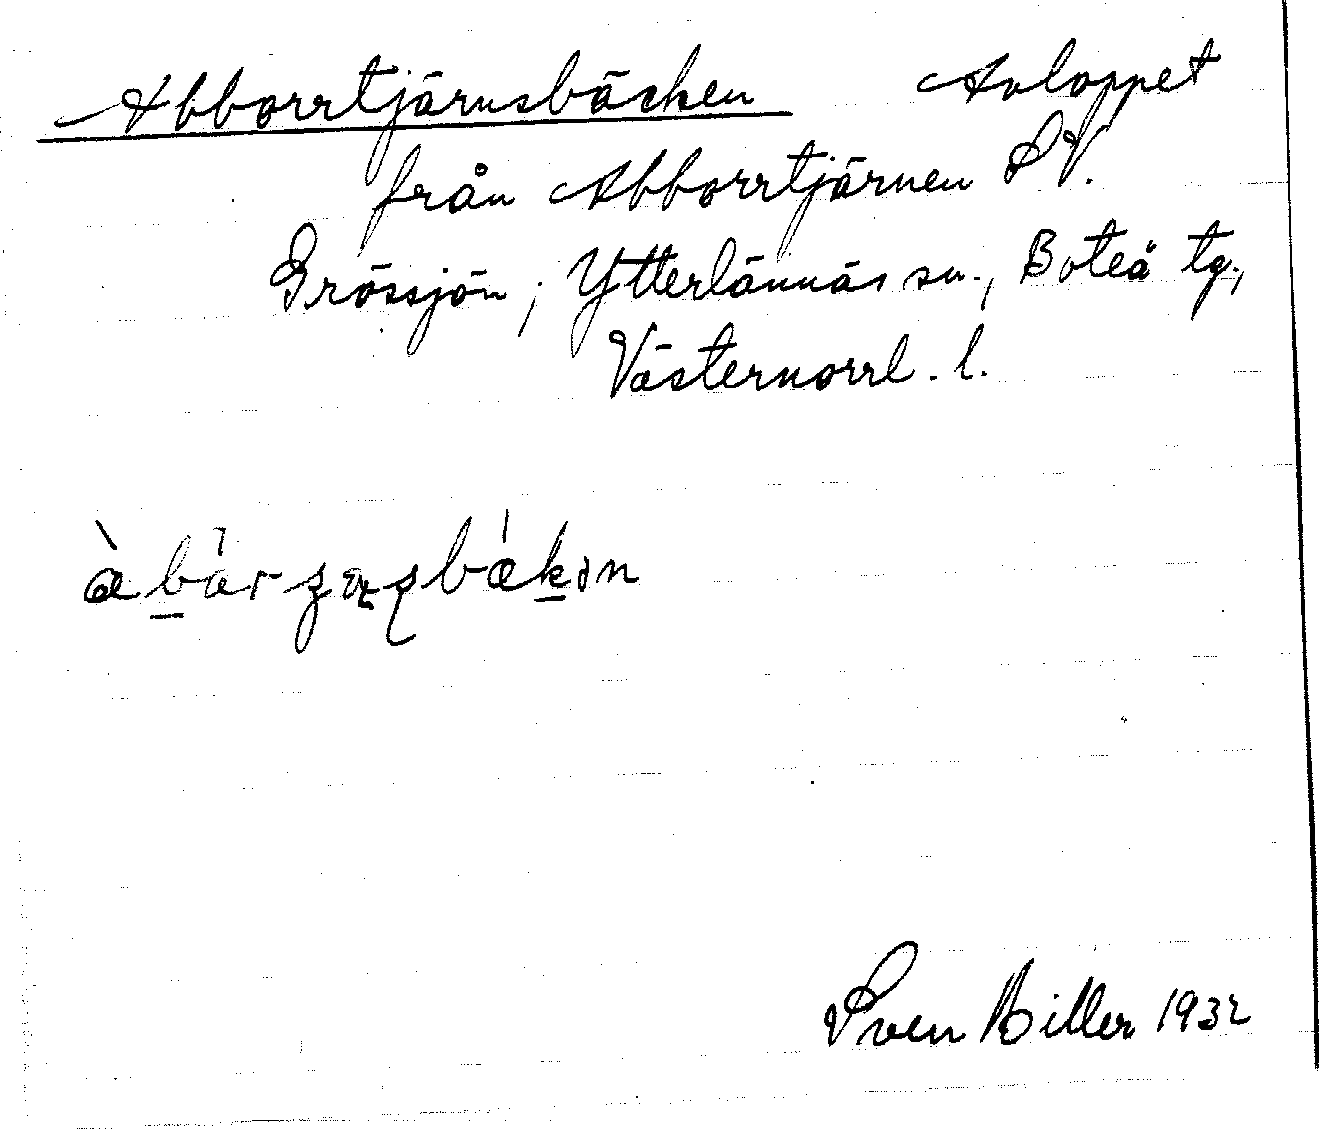 Abborrtjärnsbäcken Avloppet
från Abborrtjärnen SV.
Grössjön, Ytterlännäs sn., Boteå tg.,
Västernorrl. l.
Sven Hiller 1932